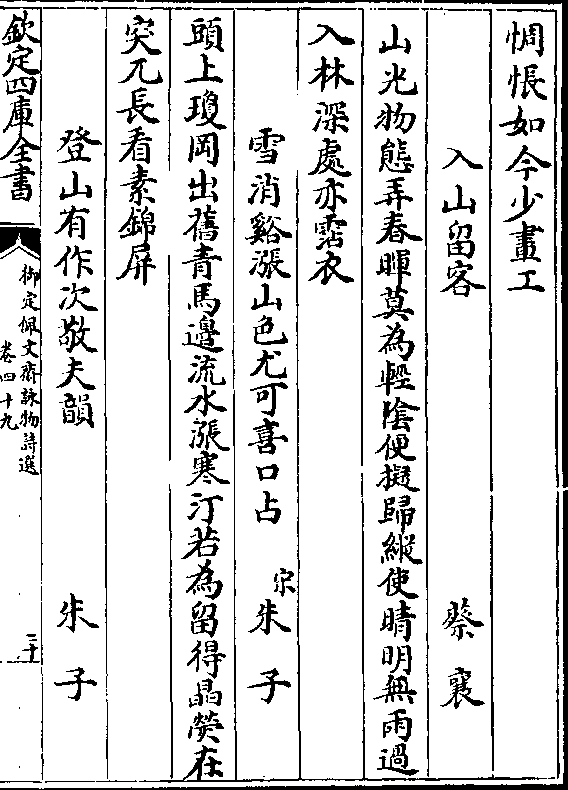 惆悵如今少畫工
入山留客 蔡襄
山光物態弄春暉莫為輕陰便擬歸縱使晴明無雨過
入林深處亦霑衣
雪消谿漲山色尤可喜口占 宋朱子
頭上瓊岡出舊青馬邊流水漲寒汀若為留得晶熒在
突兀長看素錦屏
登山有作次敬夫韻 朱子
欽定四庫全書
御定佩文齋詠物詩選
卷四十九
三十